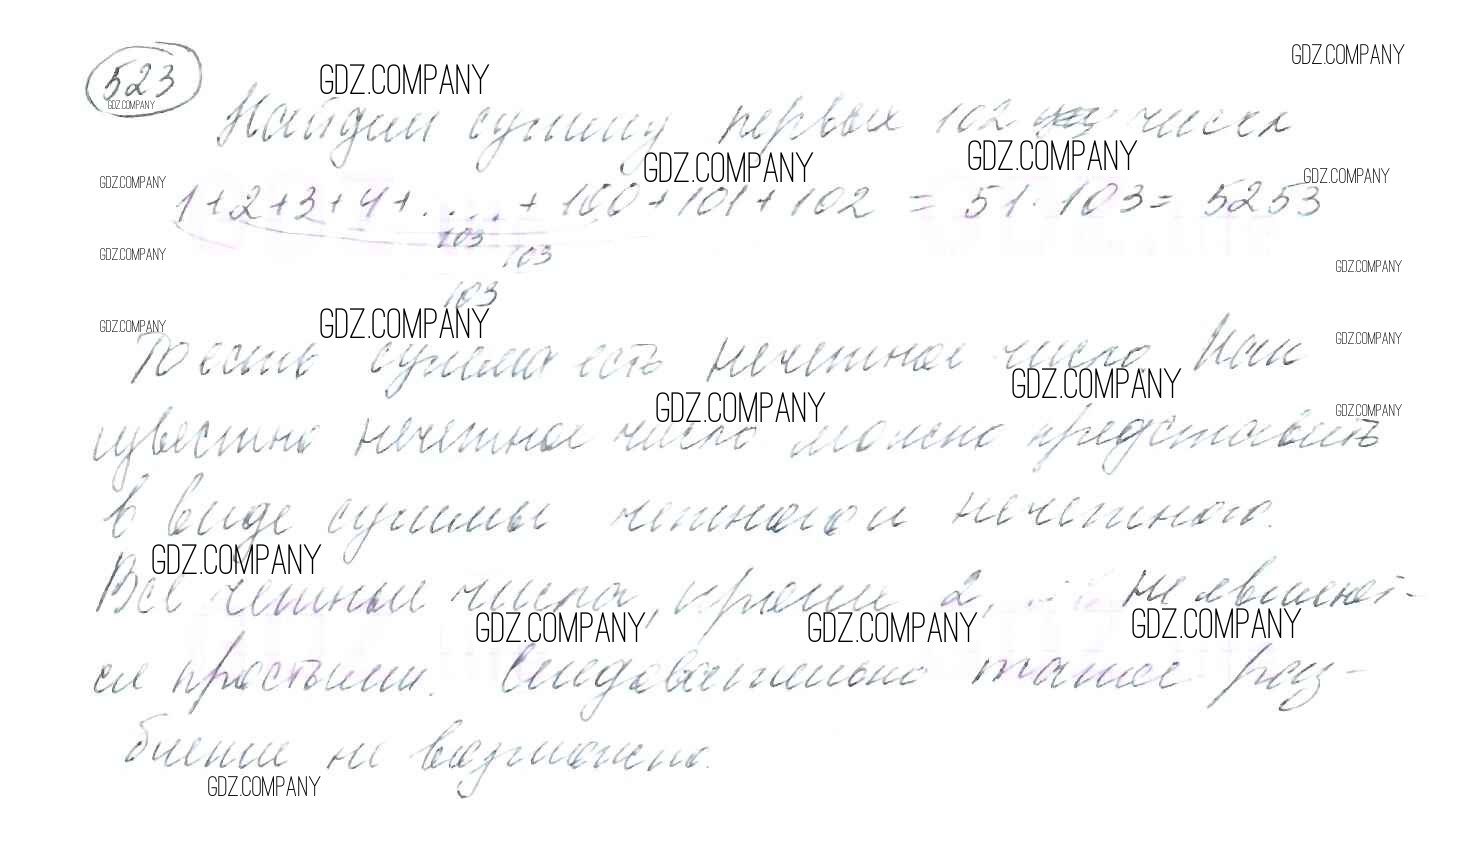 523
GDZ.COMPANY
GDZ.COMPANY
GDZ.COMPANY
Найдем сумму первых 102 чисел
GDZ.COMPANY
GDZ.COMPANY
GDZ.COMPANY
GDZ.COMPANY
1+2+3+4+....+100+101+102 = 51·103 = 5253
103
103
GDZ.COMPANY
GDZ.COMPANY
103
GDZ.COMPANY
GDZ.COMPANY
GDZ.COMPANY
То есть сумма есть нечетное число. Как
GDZ.COMPANY
GDZ.COMPANY
GDZ.COMPANY
известно нечетное число можно представить
в виде суммы четного и нечетного.
GDZ.COMPANY
Все четные числа, кроме 2, не являют-
GDZ.COMPANY
GDZ.COMPANY
GDZ.COMPANY
ся простыми. Следовательно такое раз-
биение не возможно.
GDZ.COMPANY